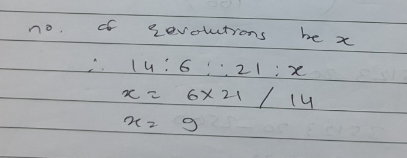 no. of revolutions be x
∴ 14 : 6 :: 21 : x
x = 6 x 21 / 14
x = 9